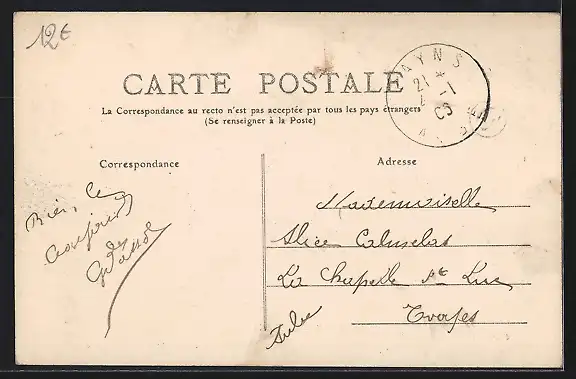 12€
CARTE POSTALE
La Correspondance au recto n'est pas acceptée par tous les pays étrangers
(Se renseigner à la Poste)
AYNS
21
Correspondance
Adresse
Mademoiselle
Alice
La Chapelle St Luc
Troyes
Aube
Bien, le